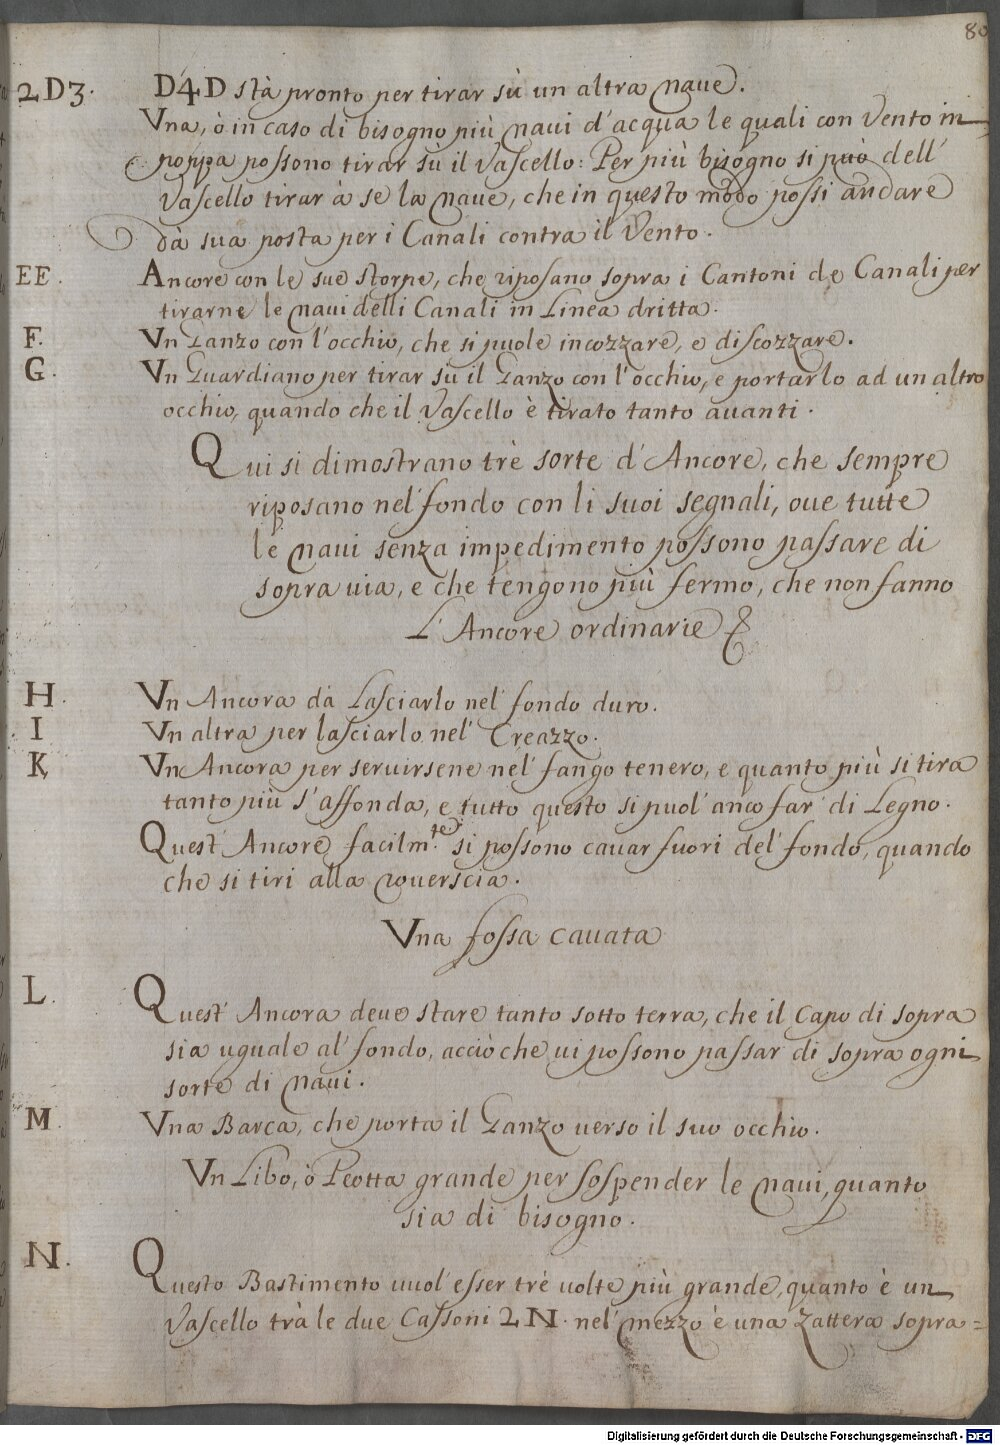 80
2D3. D4D stà pronto per tirar sù un altra naue.
Vna, ò in caso di bisogno più naui d'acqua le quali con Vento in
poppa possono tirar su il Vascello: Per più bisogno si può dell'
Vascello tirar à se la naue, che in questo modo possi andare
dà sua posta per i Canali contra il Vento.
EE. Ancore con le sue storpe, che riposano sopra i Cantoni de Canali per
tirarne le naui delli Canali in Linea dritta.
F. Vn Ganzo con l'occhio, che si puole incozzare, e discozzare.
G. Vn Guardiano per tirar su il Ganzo con l'occhio, e portarlo ad un altro
occhio, quando che il Vascello è tirato tanto auanti.
Qui si dimostrano trè sorte d'Ancore, che sempre
riposano nel' fondo con li suoi segnali, oue tutte
le naui senza impedimento possono passare di
sopra uia, e che tengono più fermo, che non fanno
L'Ancore ordinarie
H. Vn Ancora da Lasciarlo nel' fondo duro.
I Vn altra per lasciarlo nel' Creazzo.
K Vn Ancora per seruirsene nel' fango tenero, e quanto più si tira
tanto più s'affonda, e tutto questo si puol' anco far' di Legno.
Quest' Ancore facilm.te si possono cauar fuori del' fondo, quando
che si tiri alla rouerscia.
Vna fossa cauata
L. Quest' Ancora deue stare tanto sotto terra, che il Capo di sopra
sia uguale al' fondo, acciò che ui possono passar' di sopra ogni
sorte di naui.
M. Vna Barca, che porta il Ganzo uerso il suo occhio.
Vn Libo, ò Peotta grande per sospender le naui, quanto
sia di bisogno.
N. Questo Bastimento uuol' esser trè uolte più grande, quanto è un
Vascello trà le due Cassoni 2N. nel' mezzo è una Zattera sopra=
Digitalisierung gefördert durch die Deutsche Forschungsgemeinschaft - DFG